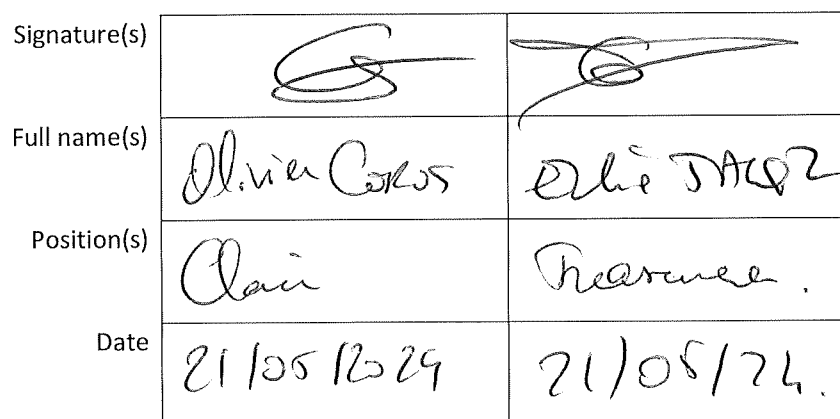 Signature(s)
Full name(s)
Olivier
Position(s)
Chair Treasurer.
Date
21/05/2024 21/05/24.